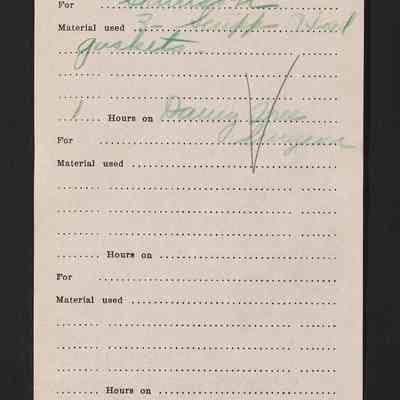 For
Material used 3 -
gaskets
1 Hours on
For
Material used
Hours on
For
Material used
Hours on